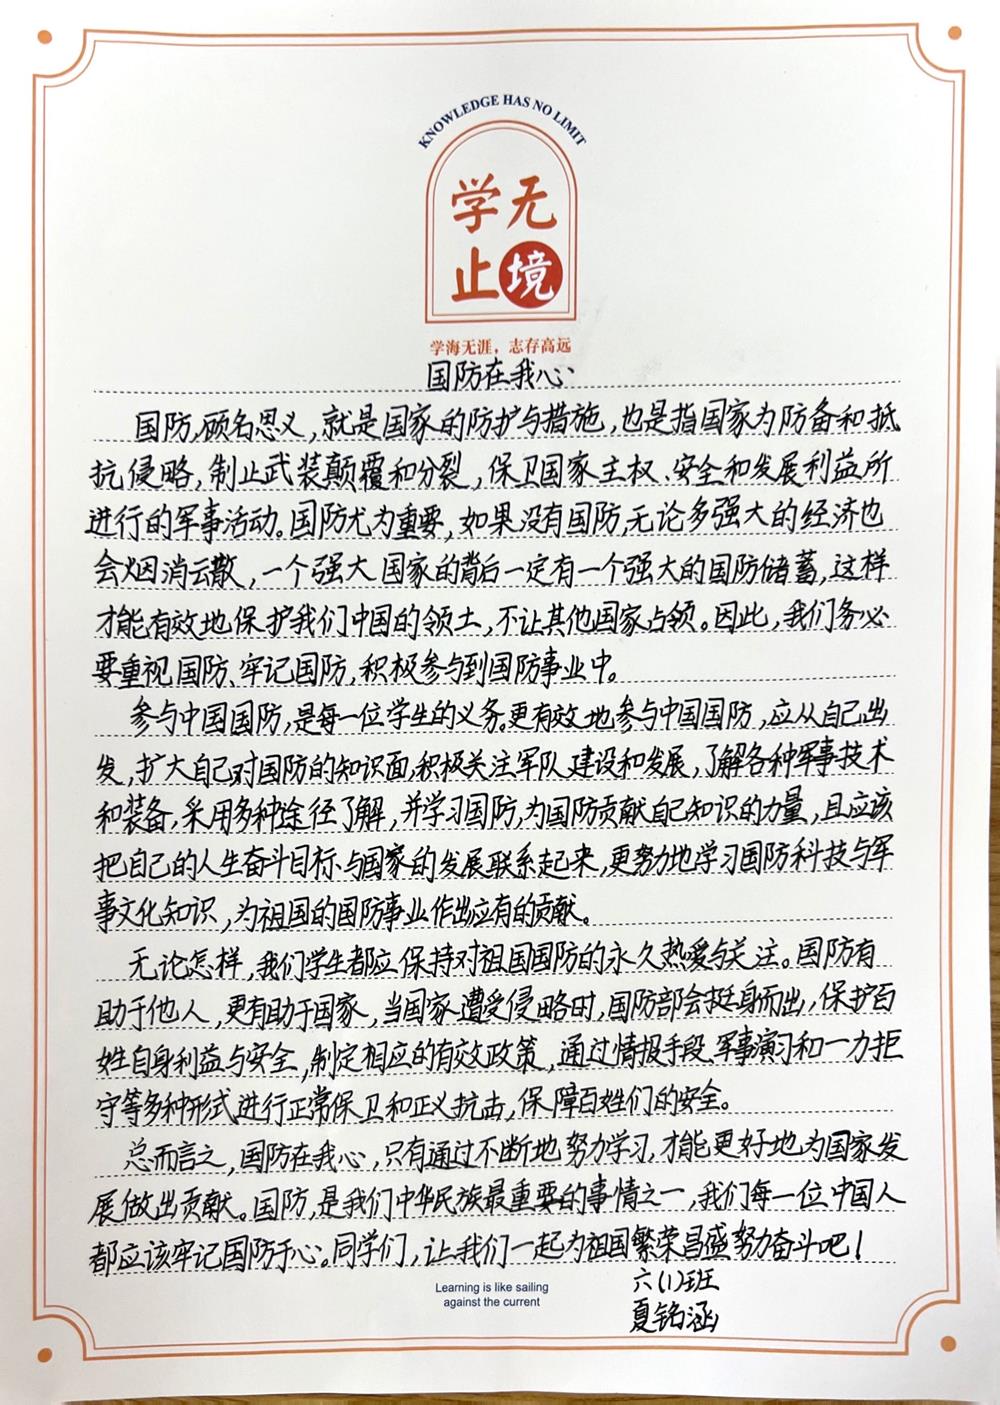 KNOWLEDGE HAS NO LIMIT
学无
止境
学海无涯，志存高远
国防在我心
国防，顾名思义，就是国家的防护与措施，也是指国家为防备和抵
抗侵略，制止武装颠覆和分裂，保卫国家主权、安全和发展利益所
进行的军事活动。国防尤为重要，如果没有国防，无论多强大的经济也
会烟消云散，一个强大国家的背后一定有一个强大的国防储蓄，这样
才能有效地保护我们中国的领土，不让其他国家占领。因此，我们务必
要重视国防、牢记国防，积极参与到国防事业中。
参与中国国防，是每一位学生的义务。更有效地参与中国国防，应从自己出
发，扩大自己对国防的知识面，积极关注军队建设和发展，了解各种军事技术
和装备，采用多种途径了解，并学习国防，为国防贡献自己知识的力量，且应该
把自己的人生奋斗目标与国家的发展联系起来，更努力地学习国防科技与军
事文化知识，为祖国的国防事业作出应有的贡献。
无论怎样，我们学生都应保持对祖国国防的永久热爱与关注。国防有
助于他人，更有助于国家，当国家遭受侵略时，国防部会挺身而出，保护百
姓自身利益与安全，制定相应的有效政策，通过情报手段、军事演习和一力拒
守等多种形式进行正常保卫和正义抗击，保障百姓们的安全。
总而言之，国防在我心，只有通过不断地努力学习，才能更好地为国家发
展做出贡献。国防，是我们中华民族最重要的事情之一，我们每一位中国人
都应该牢记国防于心。同学们，让我们一起为祖国繁荣昌盛努力奋斗吧！
六(1)班
夏铭涵
Learning is like sailing
against the current